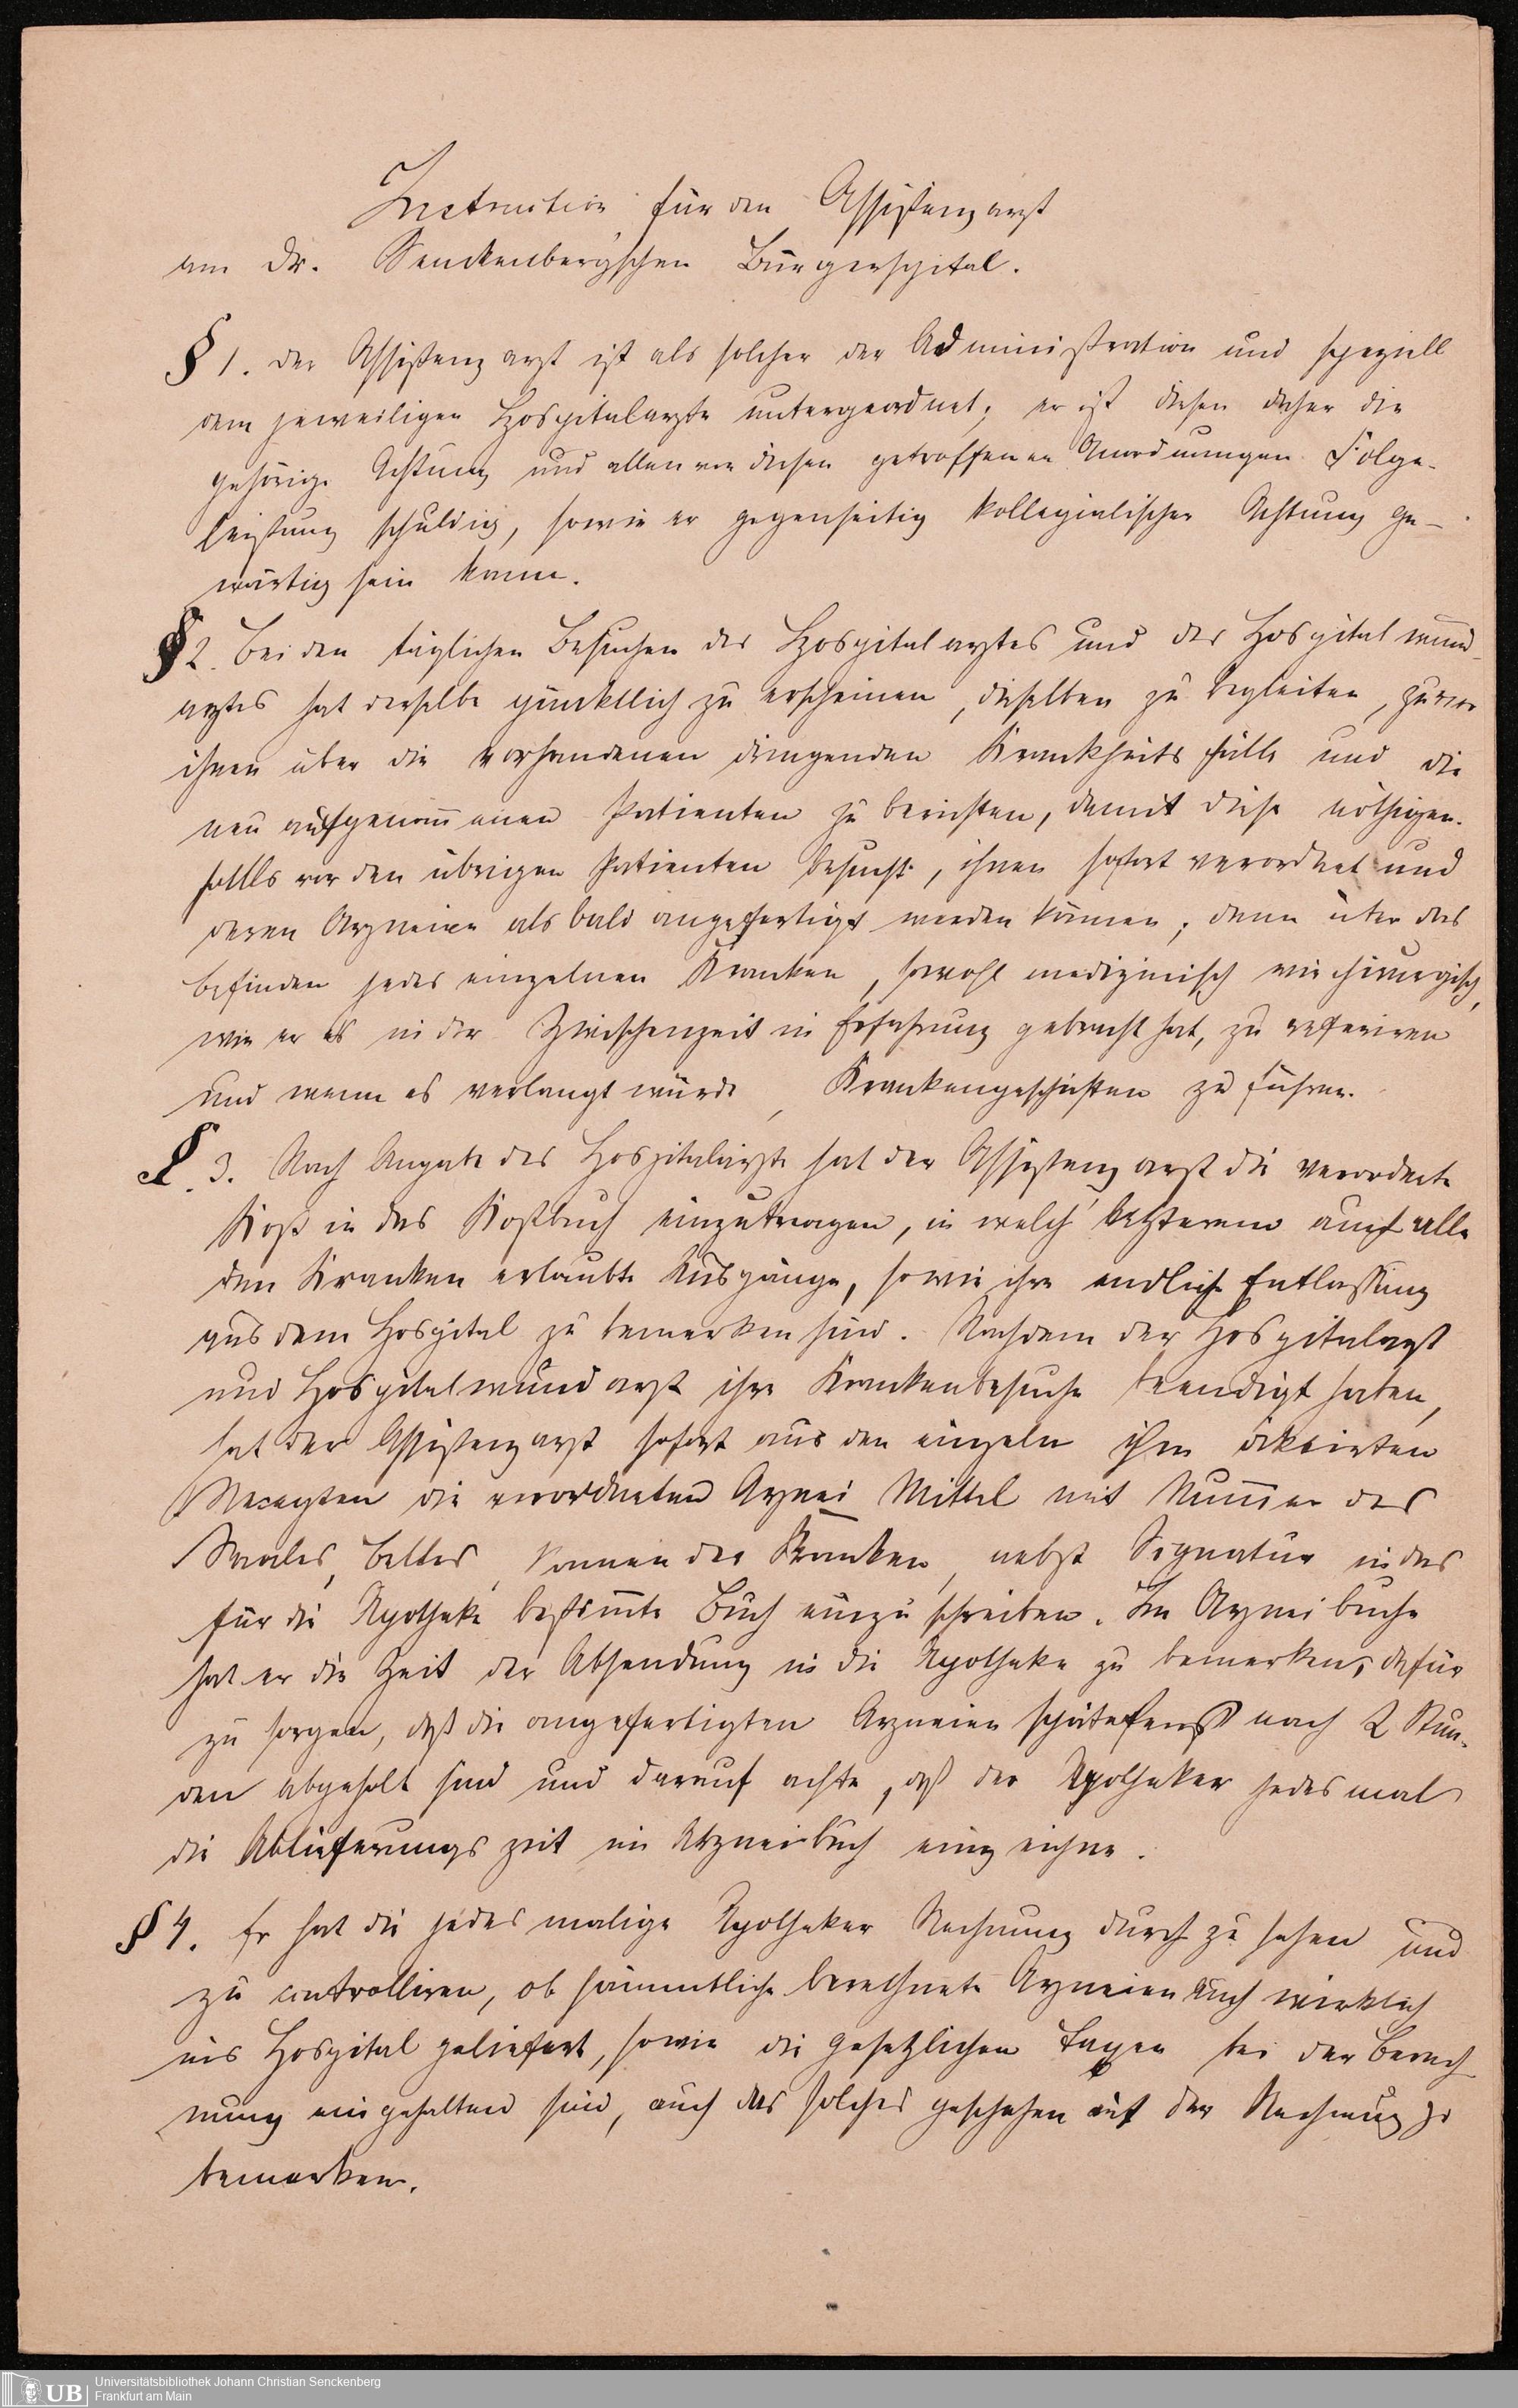 Instruction für den Assistenzarzt
am Dr. Senckenberg'schen Bürgerspital.
§ 1. Der Assistenzarzt ist als solcher der Administration und speziell
dem jeweiligen Hospitalarzte untergeordnet; er ist diesen daher die
gehörige Achtung und allen von diesen getroffenen Anordnungen Folge-
leistung schuldig, sowie er gegenseitig kollegialischer Achtung ge-
wärtig sein kann.
§ 2. Bei den täglichen Besuchen des Hospitalarztes und des Hospitalwund-
arztes hat derselbe pünktlich zu erscheinen, dieselben zu begleiten, zuvor
ihnen über die vorhandenen dringenden Krankheitsfälle und die
neu aufgenom̄enen Patienten zu berichten, damit diese nöthigen-
falls vor den übrigen Patienten besucht, ihnen sofort verordnet und
deren Arzneien alsbald angefertigt werden können; dann über das
Befinden jedes einzelnen Kranken, sowohl medizinisch wie chirurgisch,
wie er es in der Zwischenzeit in Erfahrung gebracht hat, zu referiren
und wenn es verlangt würde, Krankengeschichten zu führen.
§. 3. Nach Angabe des Hospitalarzts hat der Assistenzarzt die verordnete
Kost in das Kostbuch einzutragen, in welch' letzterem auch alle
den Kranken erlaubte Ausgänge, sowie ihre endliche Entlassung
aus dem Hospital zu bemerken sind. Nachdem der Hospitalarzt
und Hospitalwundarzt ihre Krankenbesuche beendigt haben,
hat der Assistenzarzt sofort aus den einzeln ihm diktirten
Recepten die verordneten Arznei Mittel mit Num̄er des
Saales, Bettes, Namen der Kranken, nebst Signatur in das
für die Apotheke bestim̄te Buch einzuschreiben. Im Arzneibuche
hat er die Zeit der Absendung in die Apotheke zu bemerken, dafür
zu sorgen, daß die angefertigten Arzneien spätestens nach 2 Stun-
den abgeholt sind und darauf achte, daß der Apotheker jedesmal
die Ablieferungszeit im Arzneibuch einzeichne.
§ 4. Er hat die jedesmalige Apotheker Rechnung durchzusehen und
zu controlliren, ob sämmtliche berechnete Arzneien auch wirklich
ins Hospital geliefert, sowie die gesetzlichen Taxen bei der Berech
nung eingehalten sind, auch das solches geschehen auf der Rechnung zu
bemerken.
UB Universitätsbibliothek Johann Christian Senckenberg
Frankfurt am Main